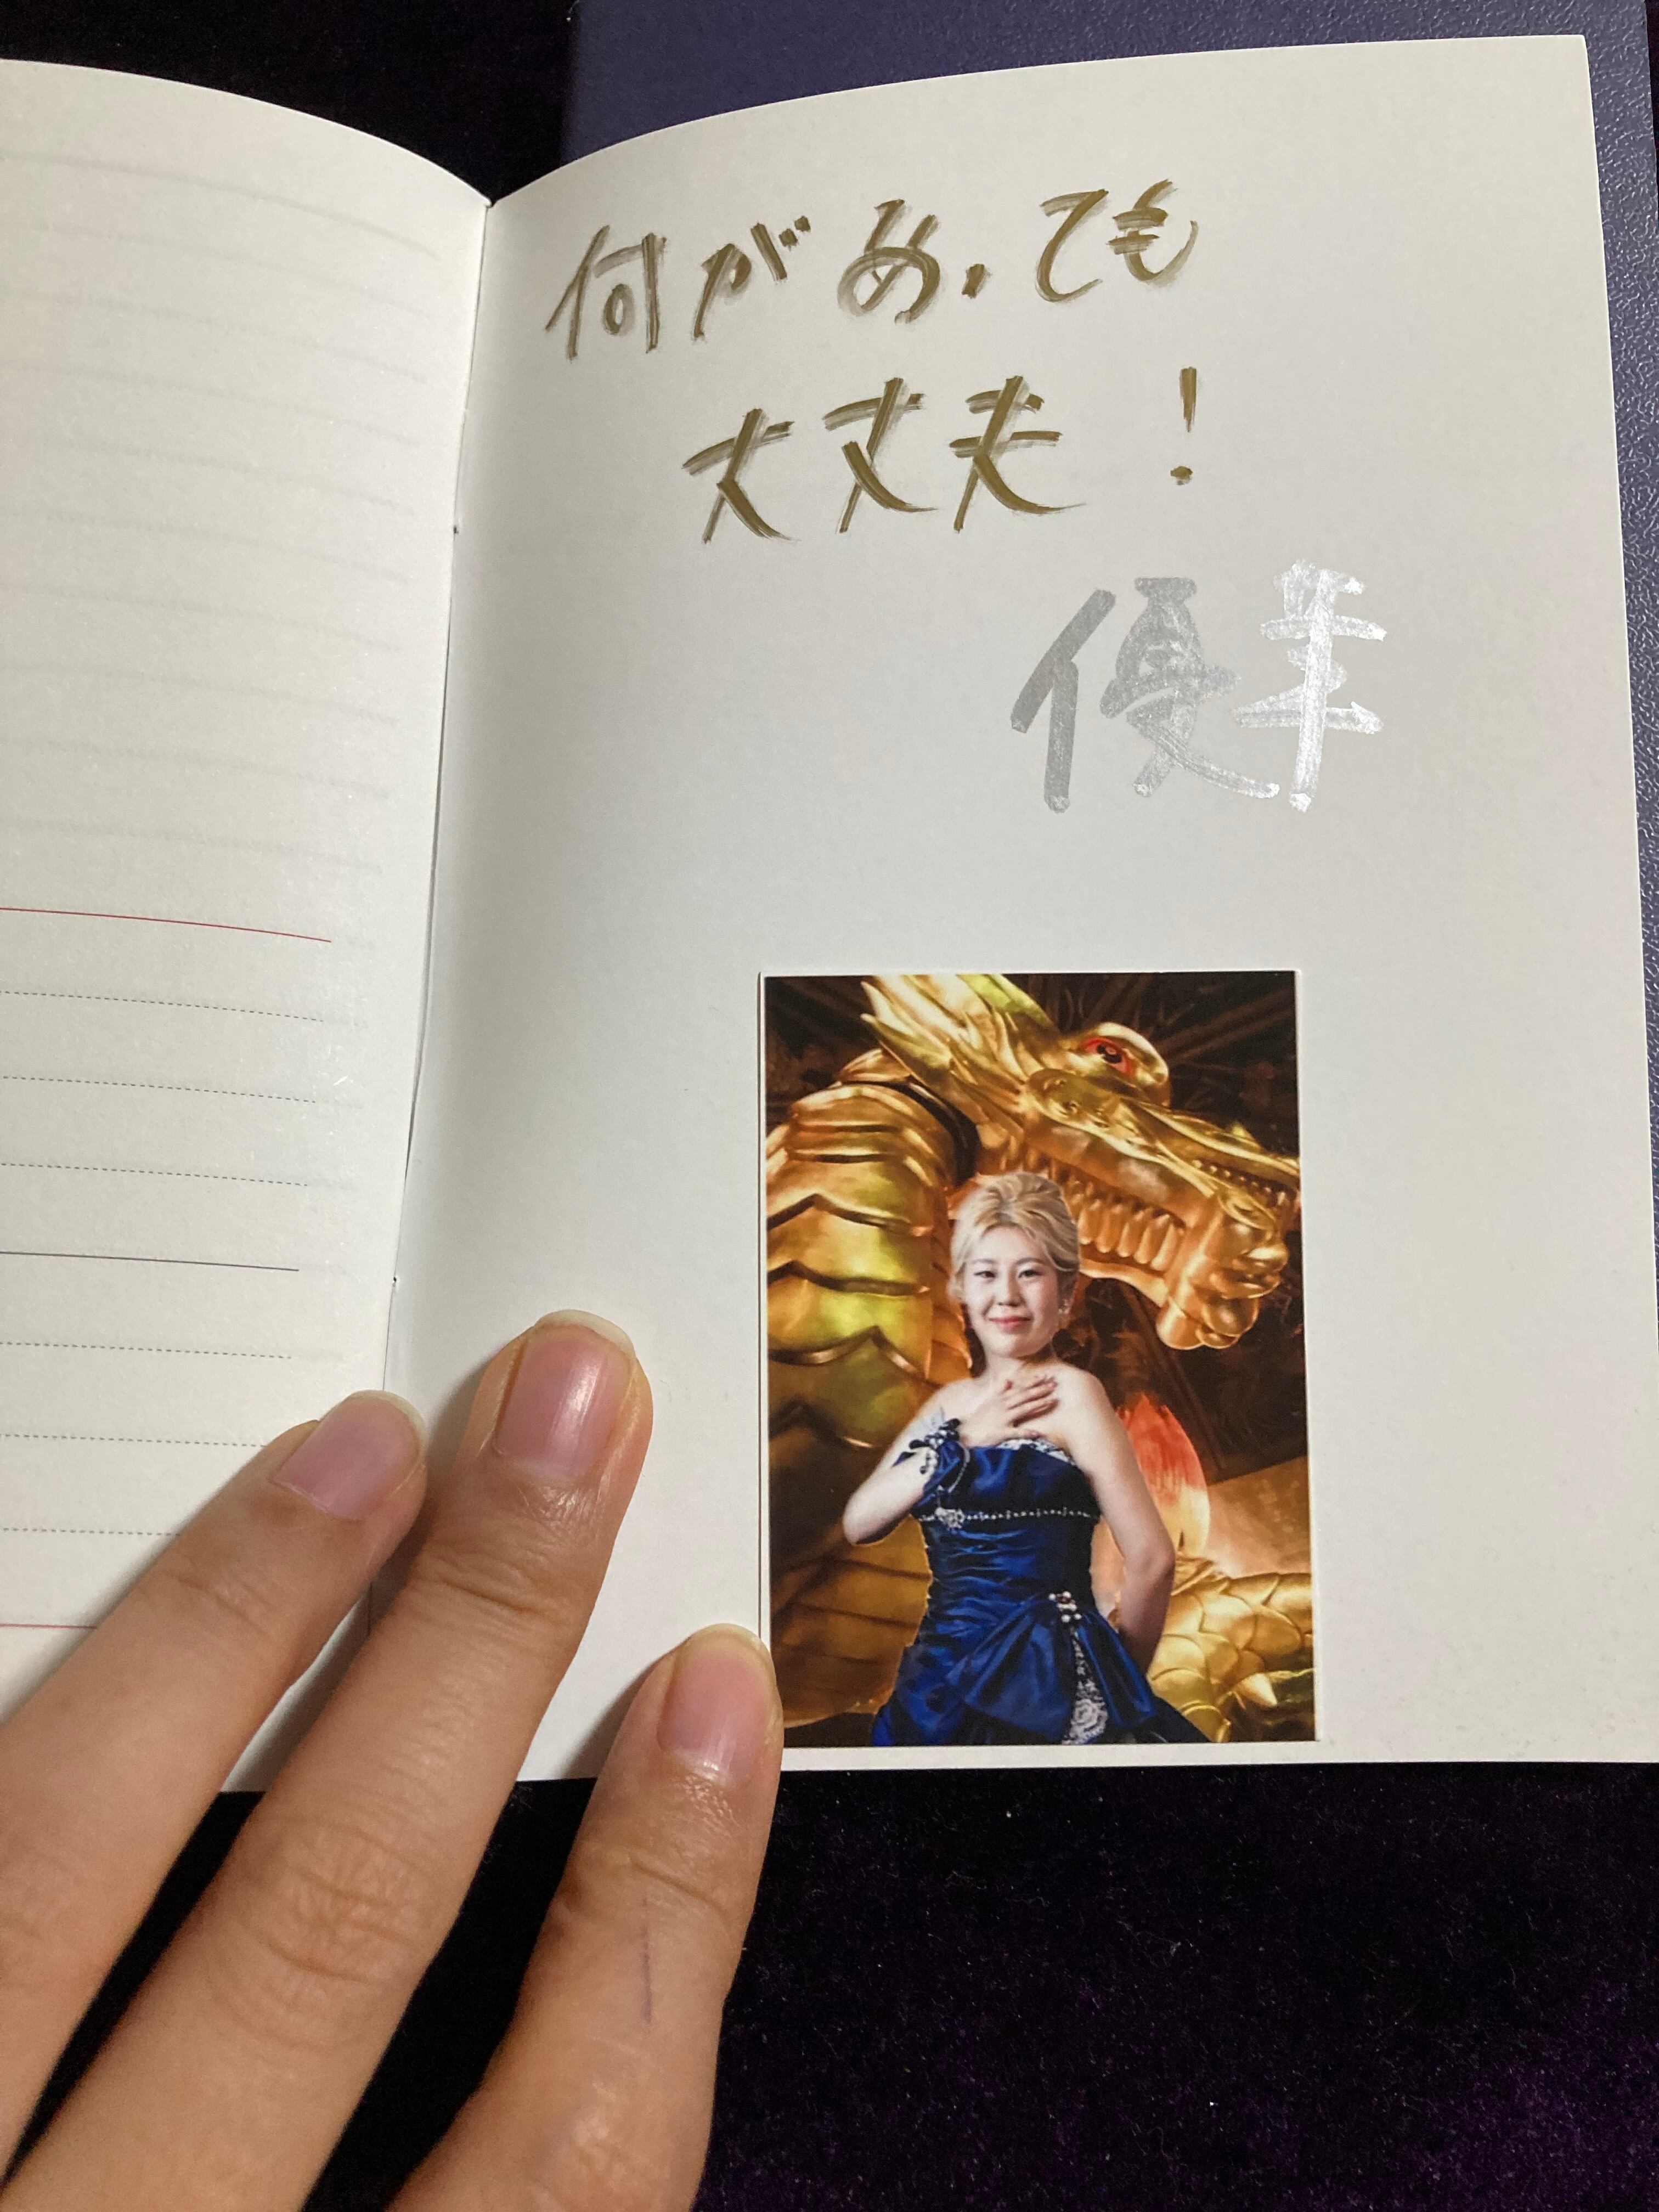 何があっても
大丈夫!
優華